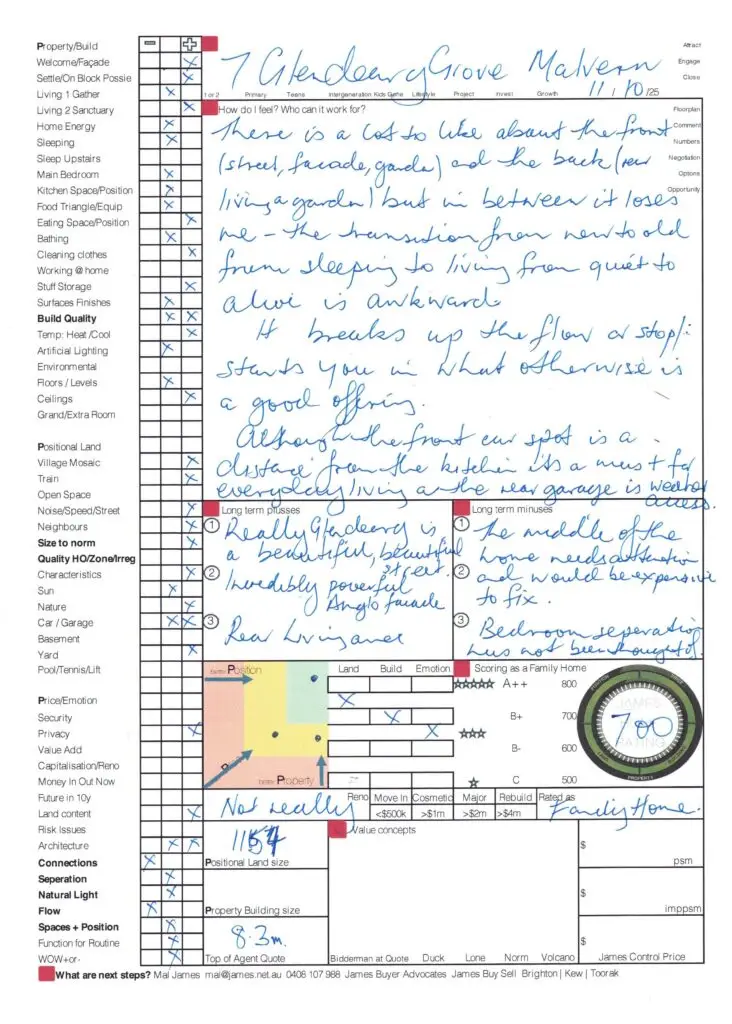 Property/Build
Welcome/Façade
Settle/On Block Possie
Living 1 Gather
Living 2 Sanctuary
Home Energy
Sleeping
Sleep Upstairs
Main Bedroom
Kitchen Space/Position
Food Triangle/Equip
Eating Space/Position
Bathing
Cleaning clothes
Working @ home
Stuff Storage
Surfaces Finishes
Build Quality
Temp: Heat /Cool
Artificial Lighting
Environmental
Floors / Levels
Ceilings
Grand/Extra Room
Positional Land
Village Mosaic
Train
Open Space
Noise/Speed/Street
Neighbours
Size to norm
Quality HO/Zone/Irreg
Characteristics
Sun
Nature
Car / Garage
Basement
Yard
Pool/Tennis/Lift
Price/Emotion
Security
Privacy
Value Add
Capitalisation/Reno
Money In Out Now
Future in 10y
Land content
Risk Issues
Architecture
Connections
Seperation
Natural Light
Flow
Spaces + Position
Function for Routine
WOW+or-
7 Glendearg Grove Malvern
11/10/25
1 or 2 Primary Teens Intergeneration Kids Gone Lifestyle Project Invest Growth
Attract
Engage
Close
Floorplan
Comment
Numbers
Negotiation
Options
Opportunity
How do I feel? Who can it work for?
There is a lot to like about the front
(street, facade, garden) and the back (rear
living & garden) but in between it loses
me - the transition from new to old
from sleeping to living from quiet to
alive is awkward
It breaks up the flow or stop/
starts you in what otherwise is
a good offering.
Although the front car spot is a
distance from the kitchen its a must for
everyday living as the rear garage is weather
access.
Long term plusses
① Really Glendearg is
a beautiful, beautiful
street.
② Incredibly powerful
Anglo facade
③ Rear Living area
Long term minuses
① The middle of the
home needs attention
② and would be expensive
to fix.
③ Bedroom seperation
has not been thought of.
better Position
better Property
Land Build Emotion
Scoring as a Family Home
A++ 800
B+ 700
B- 600
C 500
700
POSITION
PROPERTY
Not really
Reno Move In Cosmetic Major Rebuild Rated as
<$500k >$1m >$2m >$4m
Family Home.
1154
Positional Land size
Property Building size
8.3m.
Top of Agent Quote
Value concepts
Bidderman at Quote Duck Lone Norm Volcano
$ psm
$ imppsm
$
James Control Price
What are next steps? Mal James mal@james.net.au 0408 107 988 James Buyer Advocates James Buy Sell Brighton | Kew | Toorak